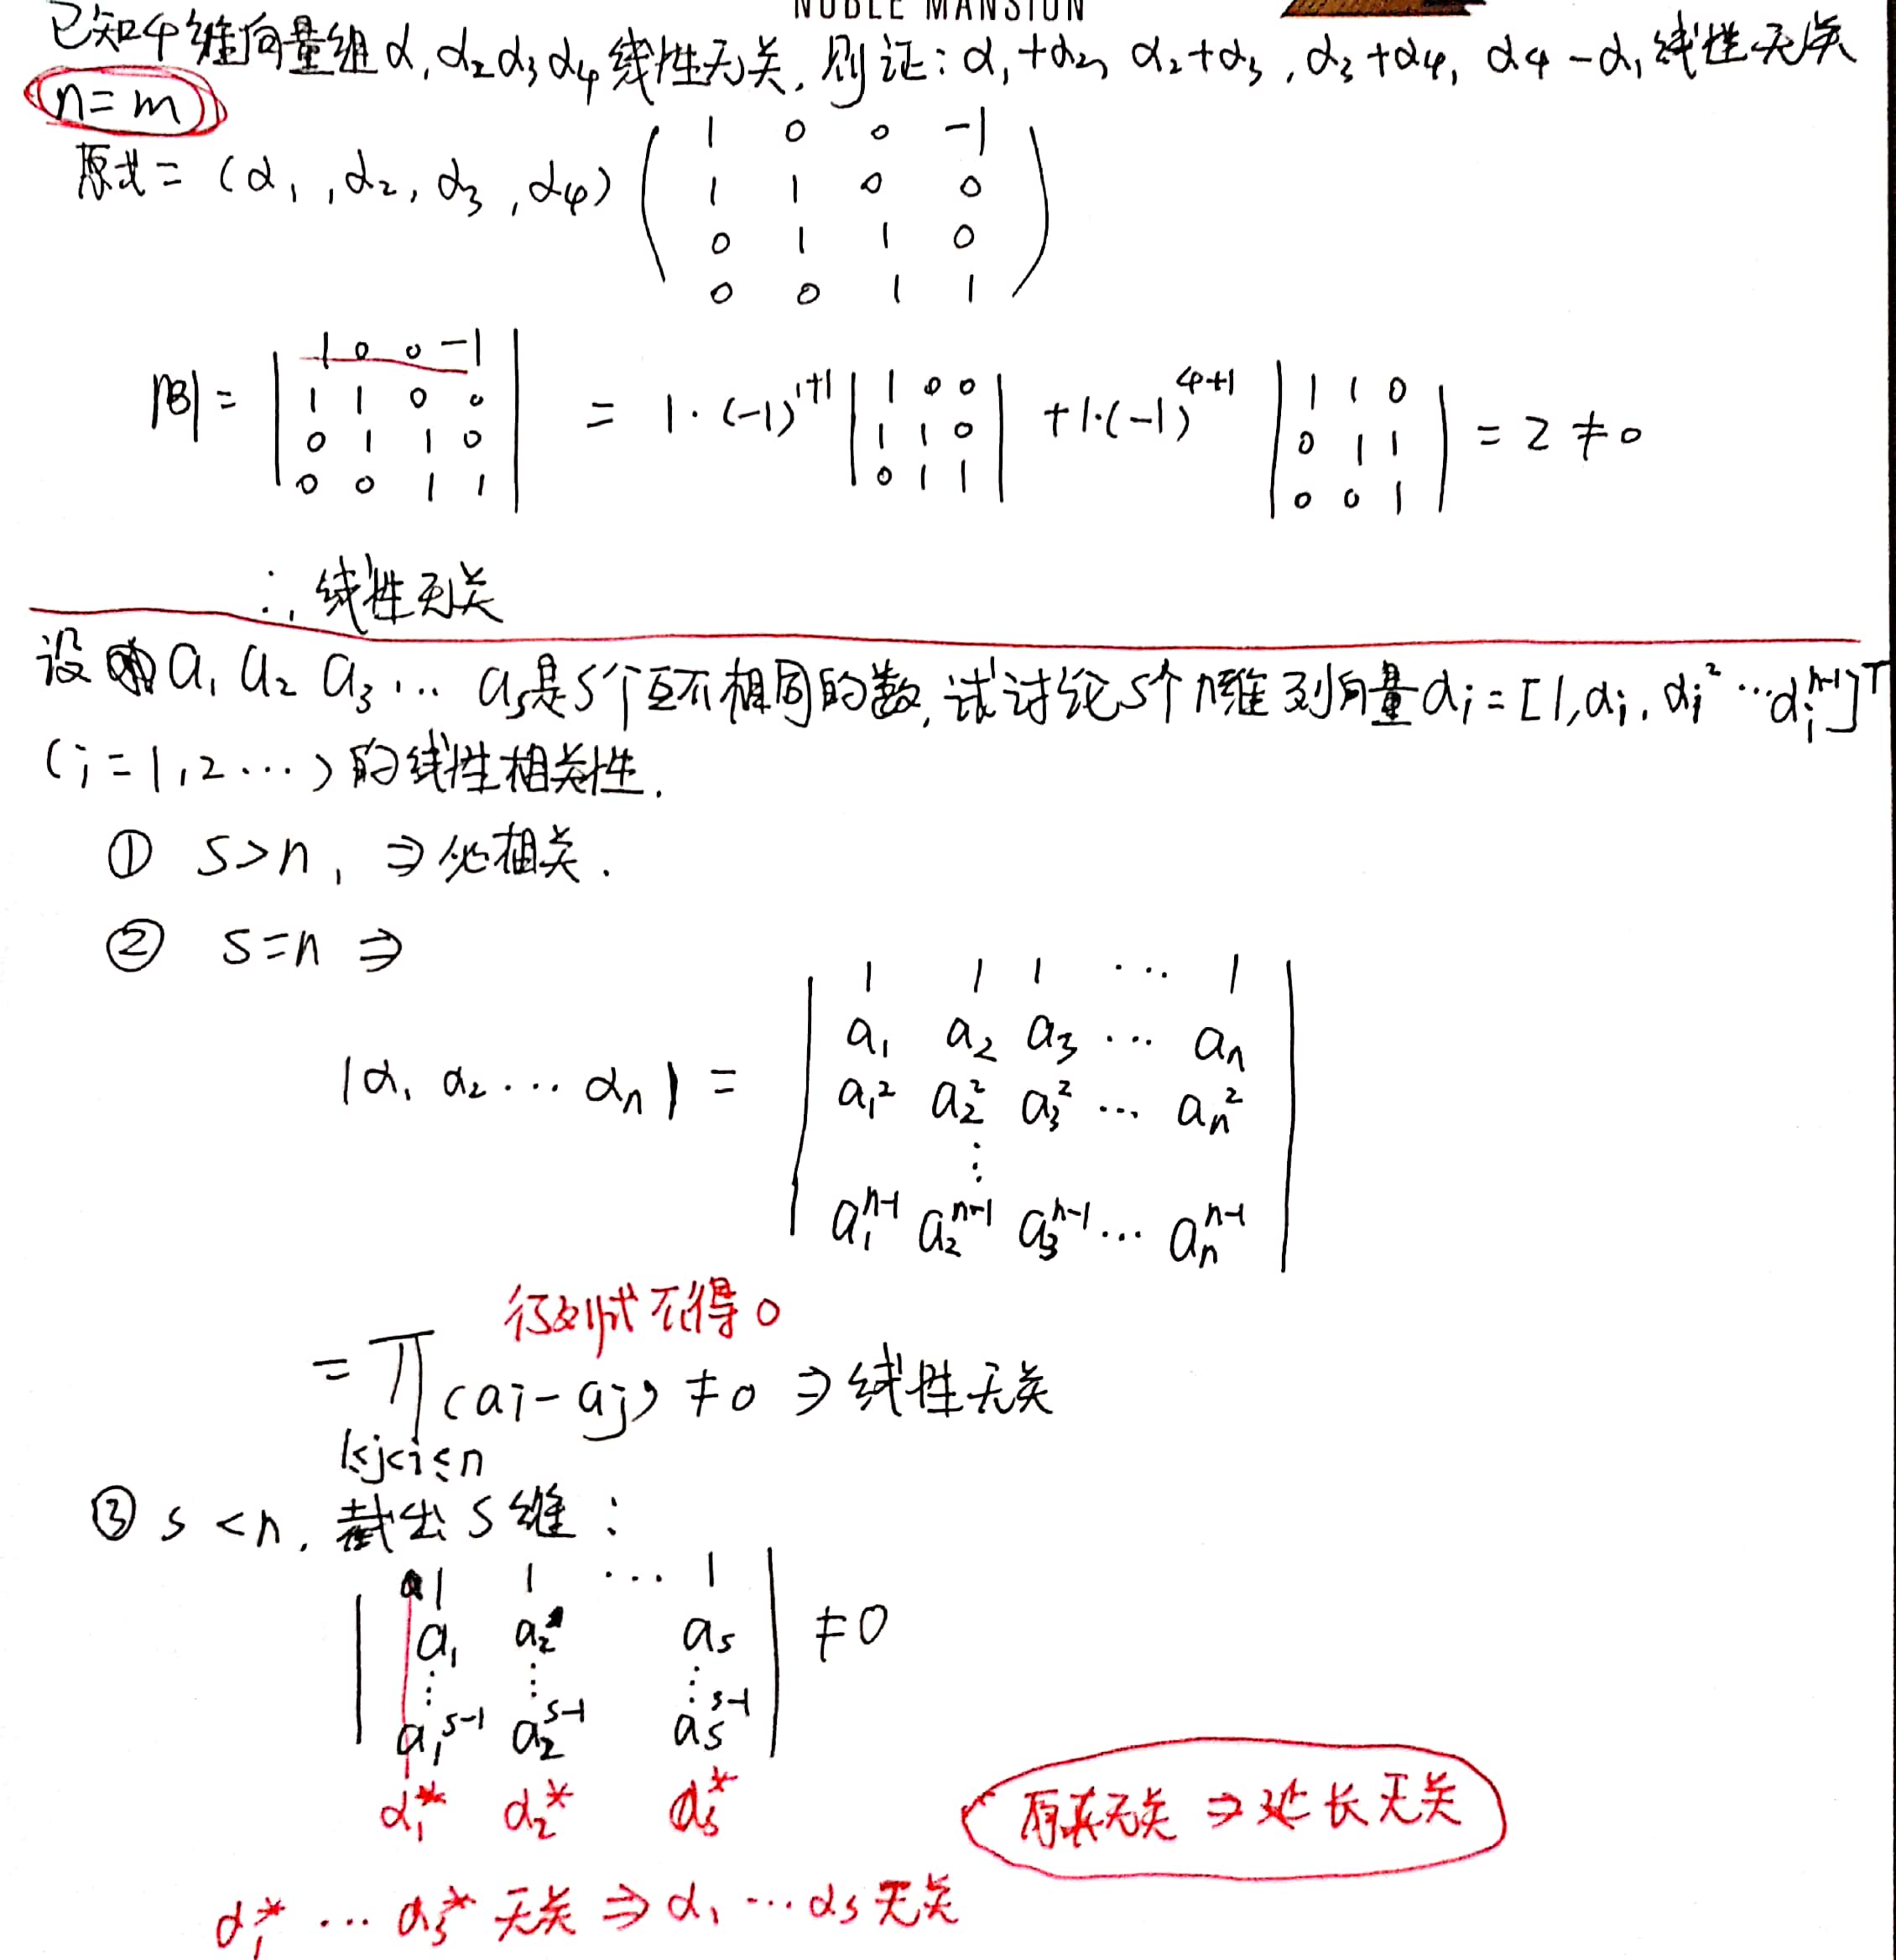 NOBLE MANSION
已知4维向量组α₁α₂α₃α₄线性无关,则证:α₁+α₂, α₂+α₃, α₃+α₄, α₄-α₁线性无关
n=m
原式=(α₁,α₂,α₃,α₄)
1 0 0 -1
1 1 0 0
0 1 1 0
0 0 1 1
|B| = | 1 0 0 -1 | = 1·(-1)¹⁺¹ | 1 0 0 | + 1·(-1)⁴⁺¹ | 1 1 0 | = 2 ≠ 0
1 1 0 0 1 1 0 0 1 1
0 1 1 0 0 1 1 0 0 1
0 0 1 1
∴线性无关
设a₁ a₂ a₃ … aₛ是s个互不相同的数,试讨论s个n维列向量αᵢ=[1,αᵢ,αᵢ²…αᵢⁿ⁻¹]ᵀ
(i=1,2…)的线性相关性.
① s>n, ⇒必相关.
② s=n ⇒
1 1 1 … 1
a₁ a₂ a₃ … aₙ
|α₁ α₂ … αₙ| = a₁² a₂² a₃² … aₙ²
⋮
a₁ⁿ⁻¹ a₂ⁿ⁻¹ a₃ⁿ⁻¹ … aₙⁿ⁻¹
行列式不得0
=∏(aᵢ-aⱼ) ≠0 ⇒线性无关
1≤j<i≤n
③ s<n, 截出s维:
1 1 … 1
a₁ a₂ aₛ ≠0
⋮ ⋮ ⋮
a₁ˢ⁻¹ a₂ˢ⁻¹ aₛˢ⁻¹
α₁* α₂* αₛ*
原来无关⇒延长无关
α₁* … αₛ* 无关⇒α₁…αₛ无关